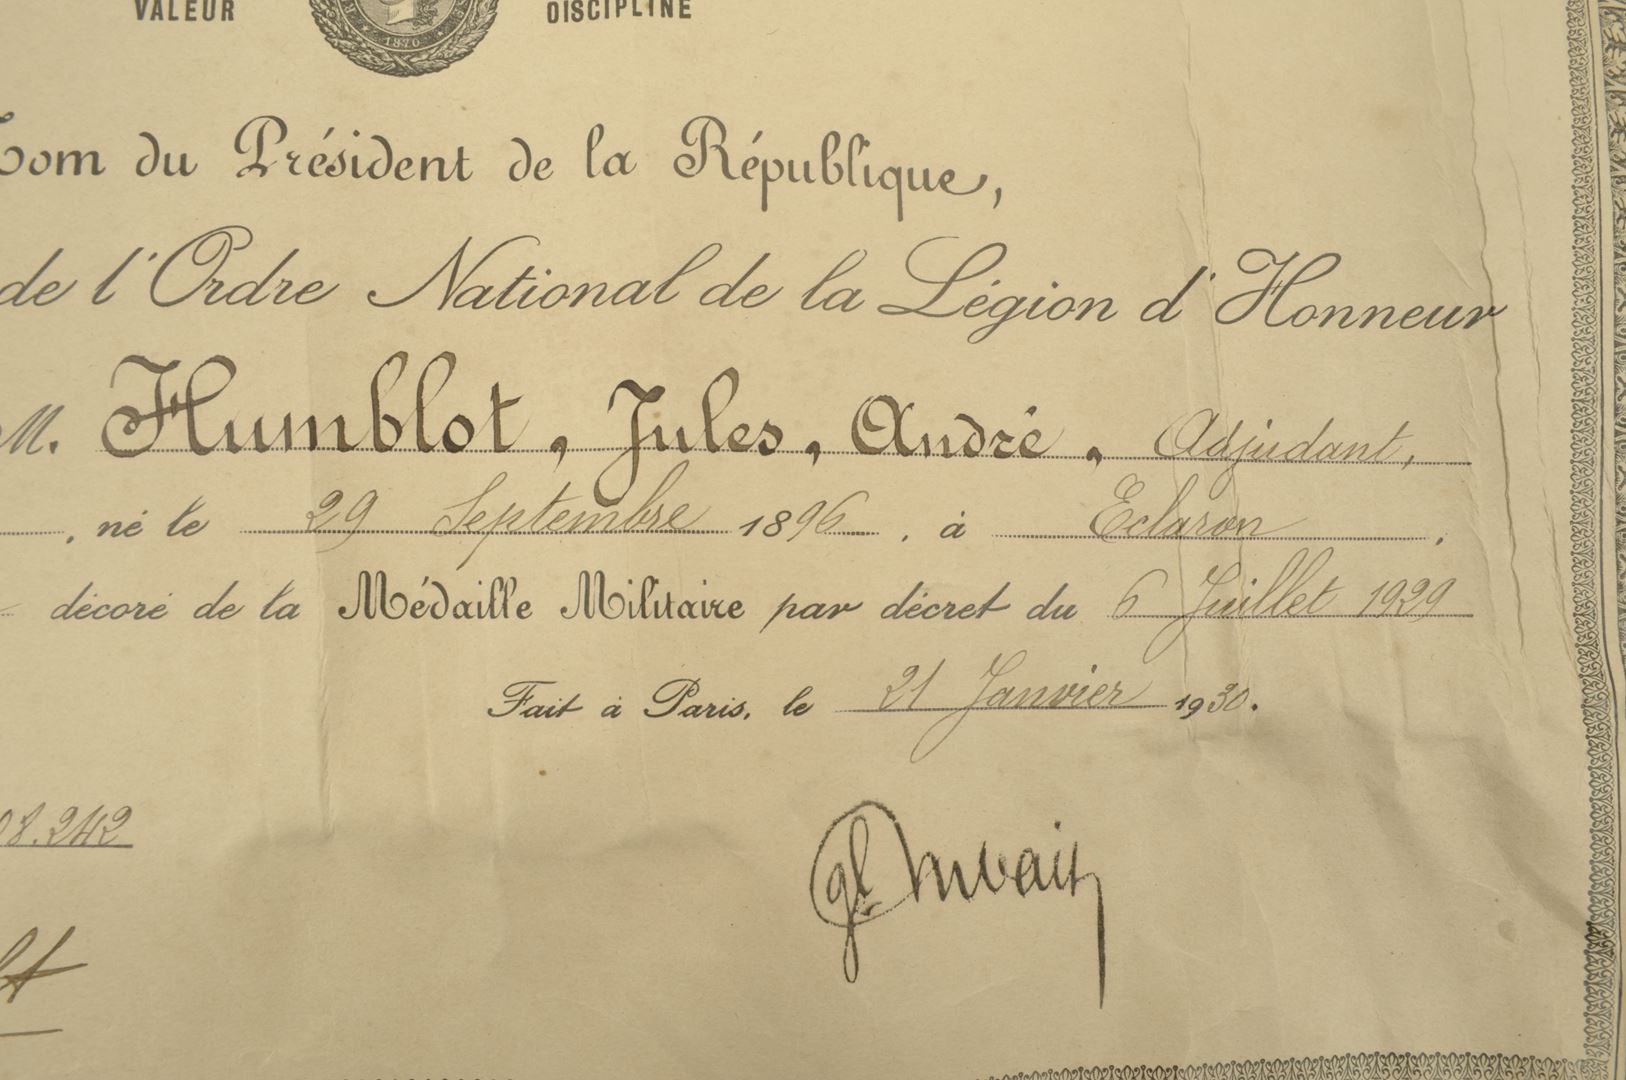 VALEUR DISCIPLINE
1870
Nom du Président de la République,
de l'Ordre National de la Légion d'Honneur
M. Humblot, Jules, André, Adjudant,
, né le 29 Septembre 1896, à Eclaron,
décoré de la Médaille Militaire par décret du 6 Juillet 1929
Fait à Paris, le 21 Janvier 1930.
08.242